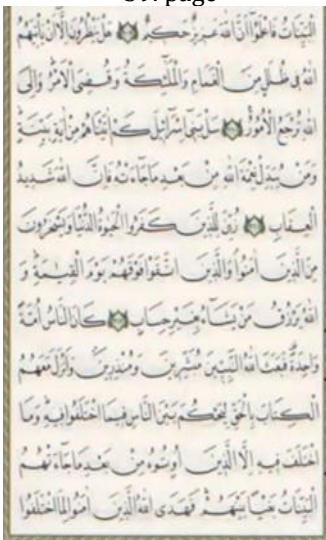 البينات فاعلموا ان الله عزيز حكيم هل ينظرون الا ان ياتيهم
الله في ظلل من الغمام والملئكة وقضي الامر والى
الله ترجع الامور سل بني اسرائيل كم اتيناهم من اية بينة
ومن يبدل نعمة الله من بعد ما جاءته فان الله شديد
العقاب زين للذين كفروا الحيوة الدنيا ويسخرون
من الذين امنوا والذين اتقوا فوقهم يوم القيمة و
الله يرزق من يشاء بغير حساب كان الناس امة
واحدة فبعث الله النبيين مبشرين ومنذرين وانزل معهم
الكتاب بالحق ليحكم بين الناس فيما اختلفوا فيه وما
اختلف فيه الا الذين اوتوه من بعد ما جاءتهم
البينات بغيا بينهم فهدى الله الذين امنوا لما اختلفوا